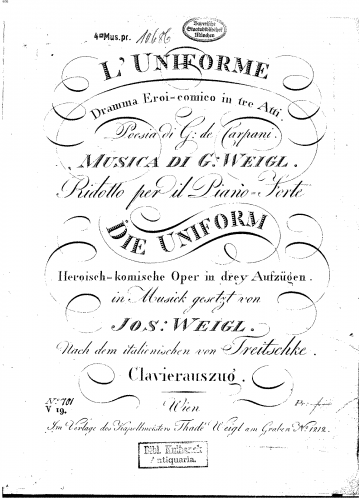 4° Mus.pr. 10686
Bayerische
Staatsbibliothek
München
L'UNIFORME
Dramma Eroi-comico in tre Atti.
Poesia di G: de Carpani.
MUSICA DI G: WEIGL.
Ridotto per il Piano-Forte
DIE UNIFORM
Heroisch-komische Oper in drey Aufzügen.
in Musick gesetzt von
JOS: WEIGL.
Nach dem italienischen von Treitschke.
Clavierauszug.
No. 701
V 19.
Wien
Im Verlage des Kapellmeisters Thad. Weigl am Graben No. 1212.
Bibl. Kulbanek
Antiquaria.